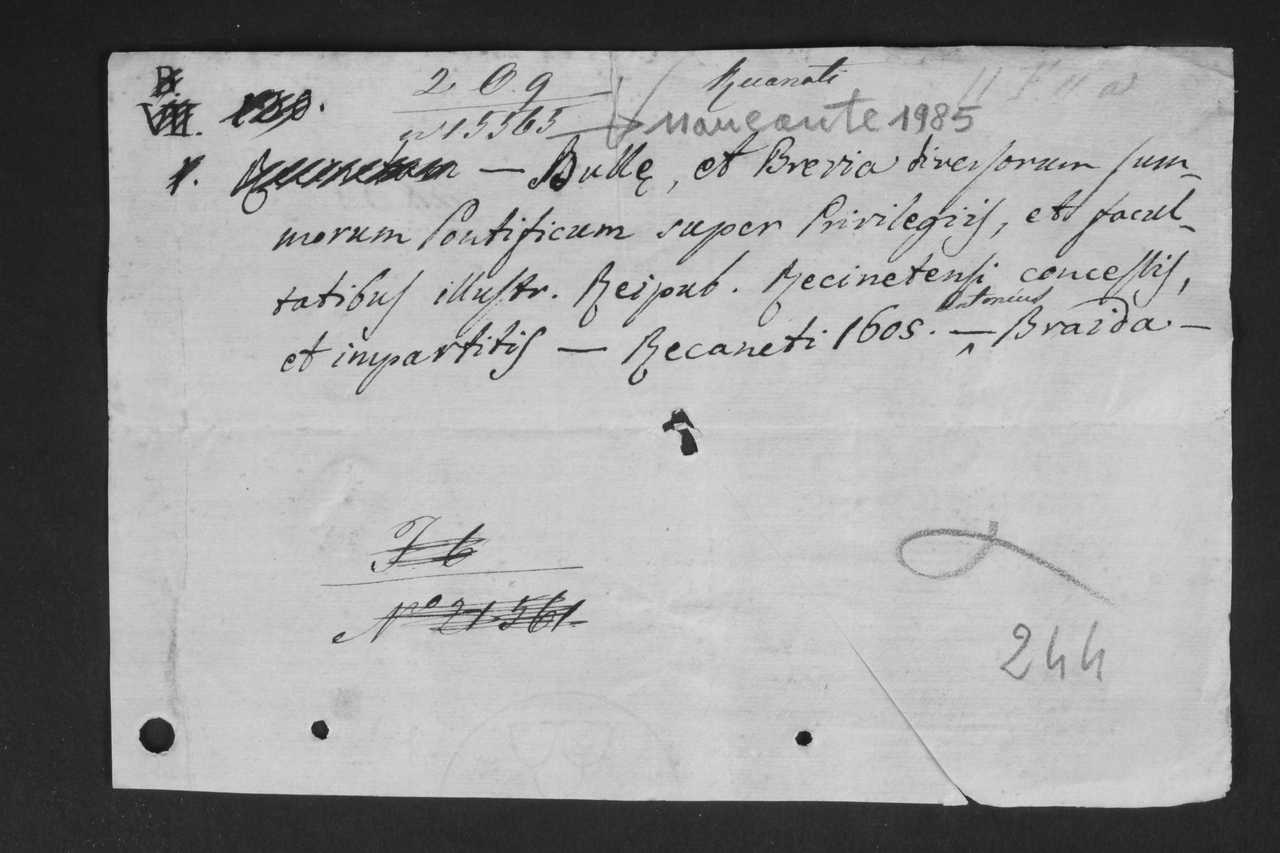 B.
VIII. 2 O. 9 Recanati
n° 15565 mancante 1985
1. — Bullę, et Brevia diversorum sum-
morum Pontificum super Privilegiis, et facul-
tatibus illustr. Reipub. Recinetensi concessis,
et impartitis — Recaneti 1605. — Antonius Braida —
F b
N° 21561
244